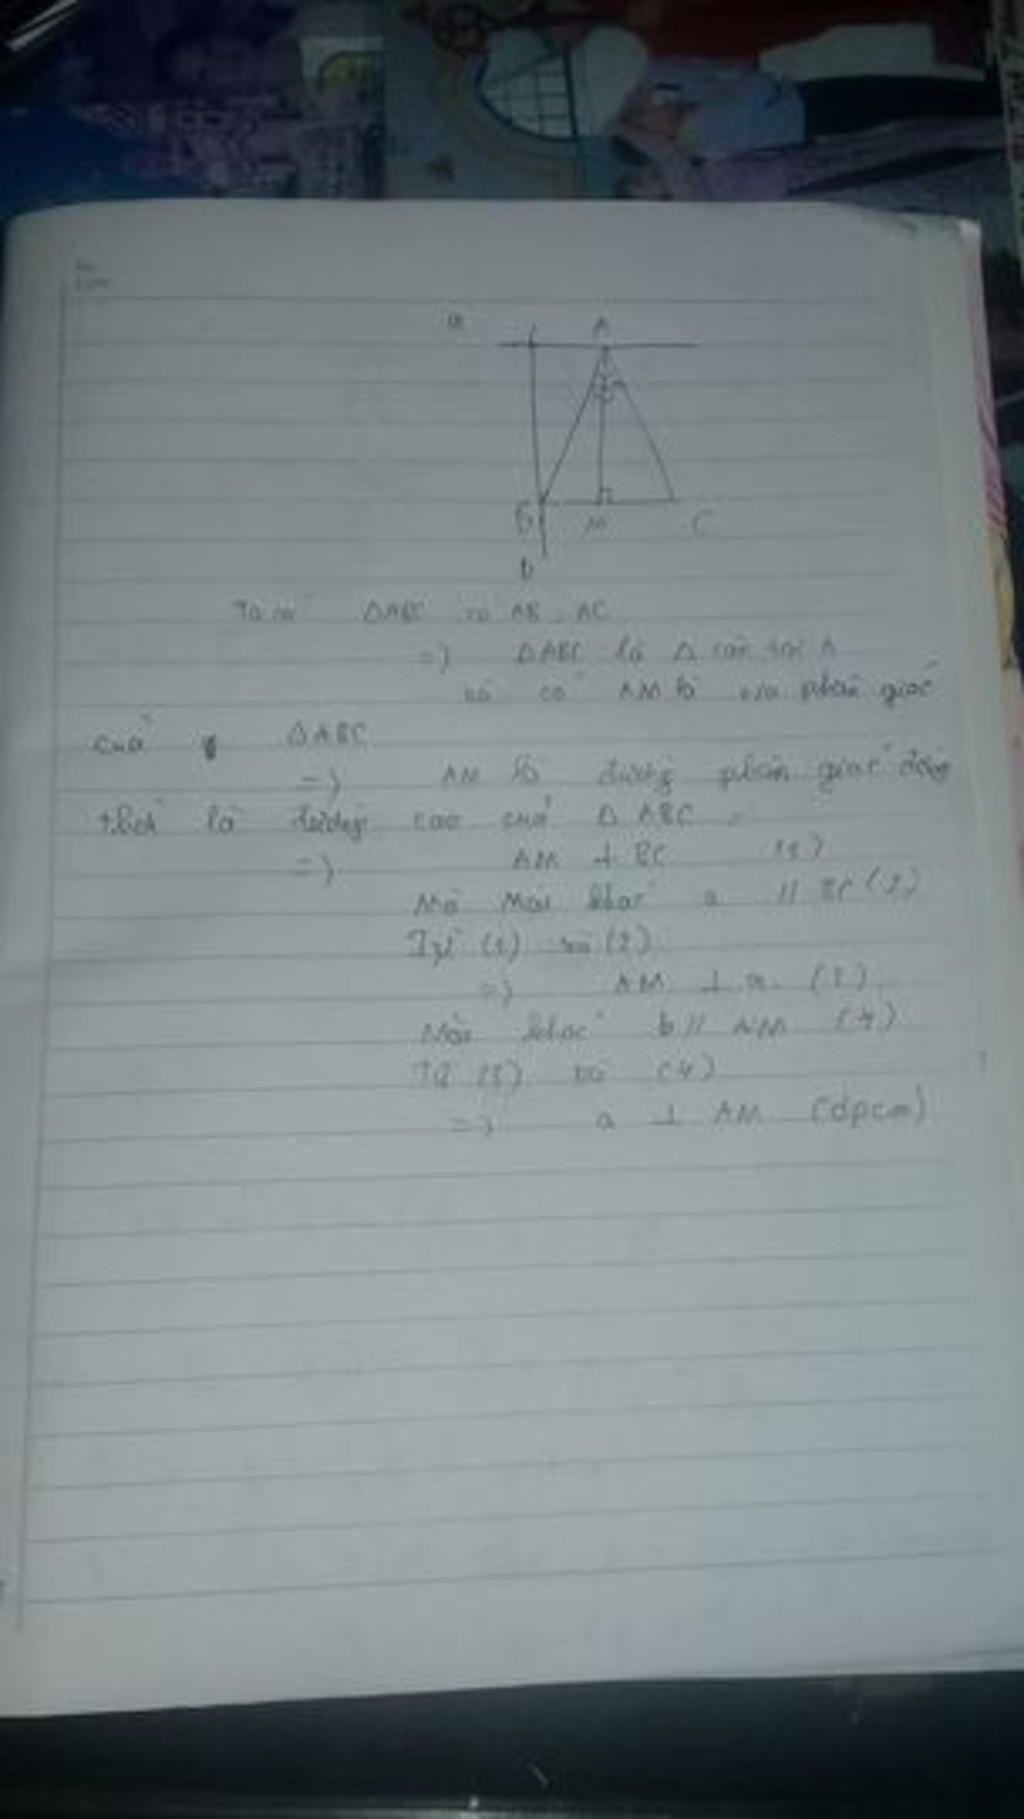 a
A
B
M
C
b
Ta có ΔABC có AB = AC
=) ΔABC là Δ cân tại A
và có AM là tia phân giác
của ΔABC
=) AM là đường phân giác đồng
thời là đường cao của ΔABC
=) AM ⊥ BC (1)
Mà Mặt khác a // BC (2)
Từ (1) và (2)
=) AM ⊥ a (3)
Mặt khác b // AM (4)
Từ (3) và (4)
=) a ⊥ AM (đpcm)